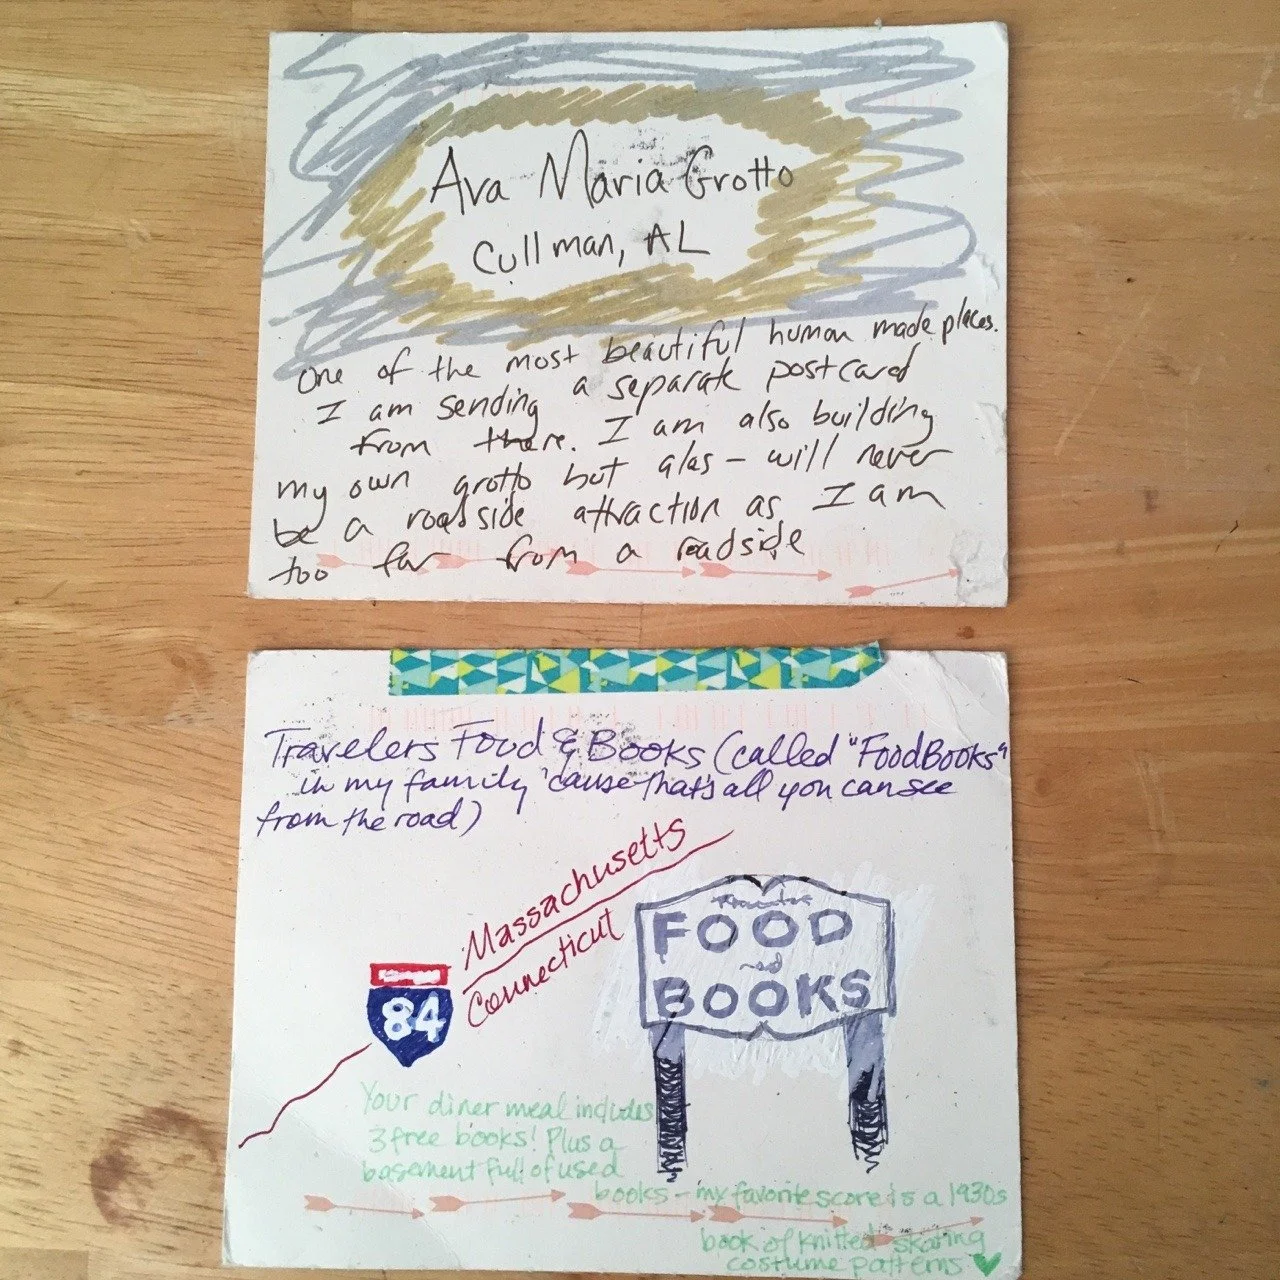 Ava Maria Grotto
Cullman, AL
One of the most beautiful human made places.
I am sending a separate postcard
from there. I am also building
my own grotto but alas - will never
be a roadside attraction as I am
too far from a roadside
Travelers Food & Books (called "FoodBooks"
in my family 'cause that's all you can see
from the road)
Massachusetts
Connecticut
84
FOOD
and
BOOKS
Your diner meal includes
3 free books! Plus a
basement full of used
books - my favorite score is a 1930s
book of knitted skating
costume patterns